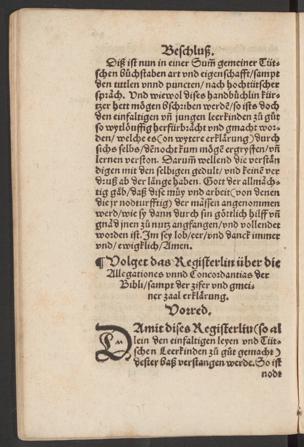 Beschluß.
Diß ist nun in einer Sum̄ gemeiner Tüt-
schen bůchstaben art vnd eigenschafft/ sampt
den tittlen vnnd puncten/ nach hochtütscher
spraͤch. Vnd wiewol dises handbůchlin kür-
tzer hett mögen bschriben werdē/ so ists doch
den einfaltigen vn̄ jungen leerkinden zů gůt
so wytlöuffig herfürbraͤcht vnd gmacht wor-
den/ welche es (on wytere erklaͤrung) durch
sichs selbs/ dēnocht kum mögē ergryffen/ vn̄
lernen verston. Darum̄ wellend die verstaͤn
digen mit den selbigen gedult/ vnd keinē ver
druß ab der länge haben. Gott der allmåch-
tig gäb/ daß dise můy vnd arbeit (von denen
die jr nodturfftig) der måssen angenommen
werd/ wie sy dann durch sin göttlich hilff vn̄
gnad jnen zů nutz angfangen/ vnd vollendet
worden ist. Im sey lob/ eer/ vnd danck immer
vnd/ ewigklich/ Amen.
¶ Volget das Registerlin über die
Allegationes vnnd Concordantias der
Bibli/ sampt der zifer vnd gmei-
ner zaal erklärung.
Vorred.
DAmit dises Registerlin (so al
lein den einfaltigen leyen vnd Tüt-
schen Leerkinden zů gůt gemacht)
dester baß verstangen werde. So ist
nodt